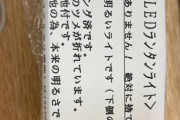 LEDランタンライト＞
ありません！ 絶対に捨て
明るいライトです（下側の
ング済です。
のツメが折れています。
池付です。
他の為、本来の明るさで